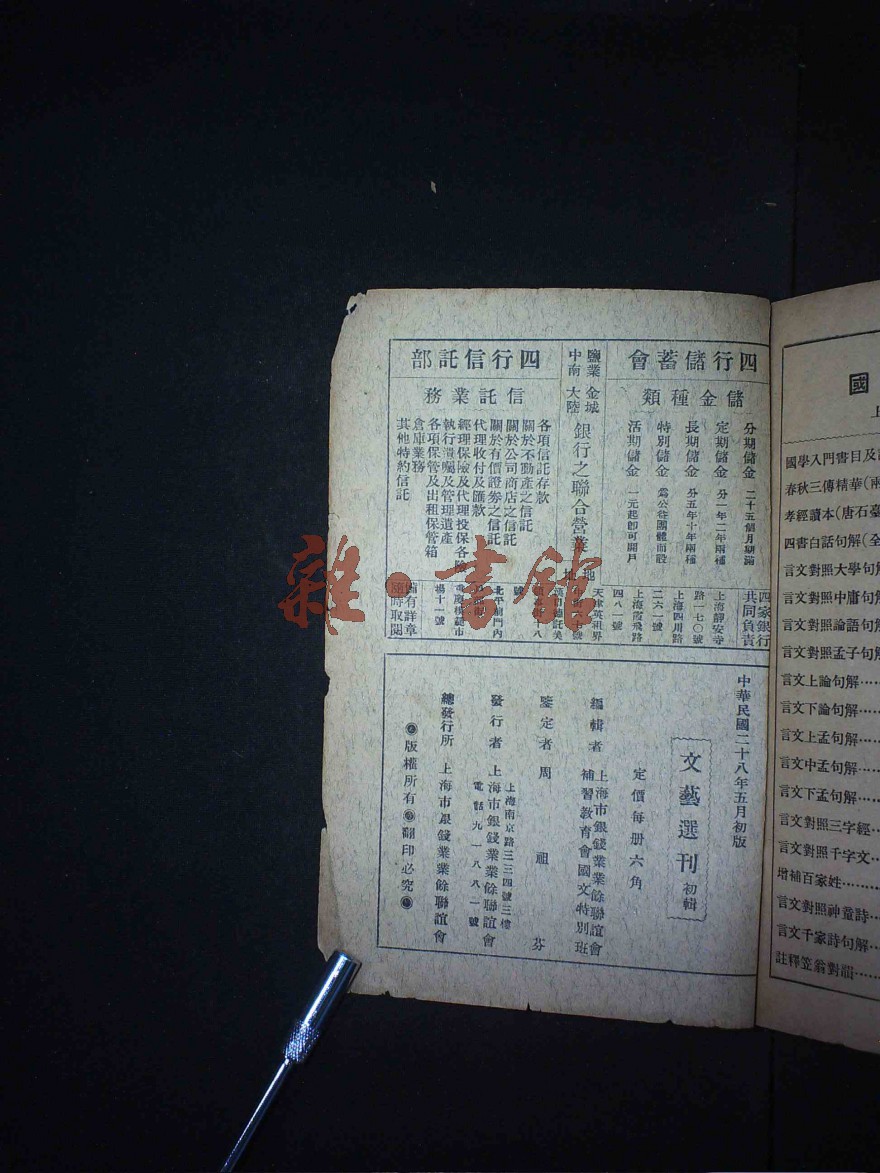 四行儲蓄會
儲金種類
分期儲金 二十五個月期滿
定期儲金 分一年二年兩種
長期儲金 分五年十年兩種
特別儲金 為公益團體而設
活期儲金 一元起卽可開戶
四家銀行
共同負責
上海靜安寺
路一七〇號
上海四川路
二六一號
上海霞飛路
四八一號
天津英租界
鹽業 金城
中南 大陸
銀行之聯合營業
四行信託部
信託業務
各項信託存款
關於不動產之信託
關於公司商店之信託
關於有價證券之信託
代理收付及匯款
經理保險及代理投保各險
執行遺囑及管理遺產
各項保管及出租保管箱
倉庫業務
其他特約信託
北平前門內
楊十一號
備有詳章
隨時取閱
中華民國二十八年五月初版
文藝選刊 初輯
定價每册六角
編輯者 上海市銀錢業業餘聯誼會
補習教育會國文特別班
鑒定者 周祖芬
發行者 上海市銀錢業業餘聯誼會
上海南京路三三四號三樓
電話九一八八一號
總發行所 上海市銀錢業業餘聯誼會
版權所有 翻印必究
國
上
國學入門書目及
春秋三傳精華(兩
孝經讀本(唐石臺
四書白話句解(全
言文對照大學句解
言文對照中庸句解
言文對照論語句解
言文對照孟子句解
言文上論句解……
言文下論句解……
言文上孟句解……
言文中孟句解……
言文下孟句解……
言文對照三字經…
言文對照千字文…
增補百家姓………
言文對照神童詩…
言文千家詩句解…
註釋笠翁對韻……
雜·書館